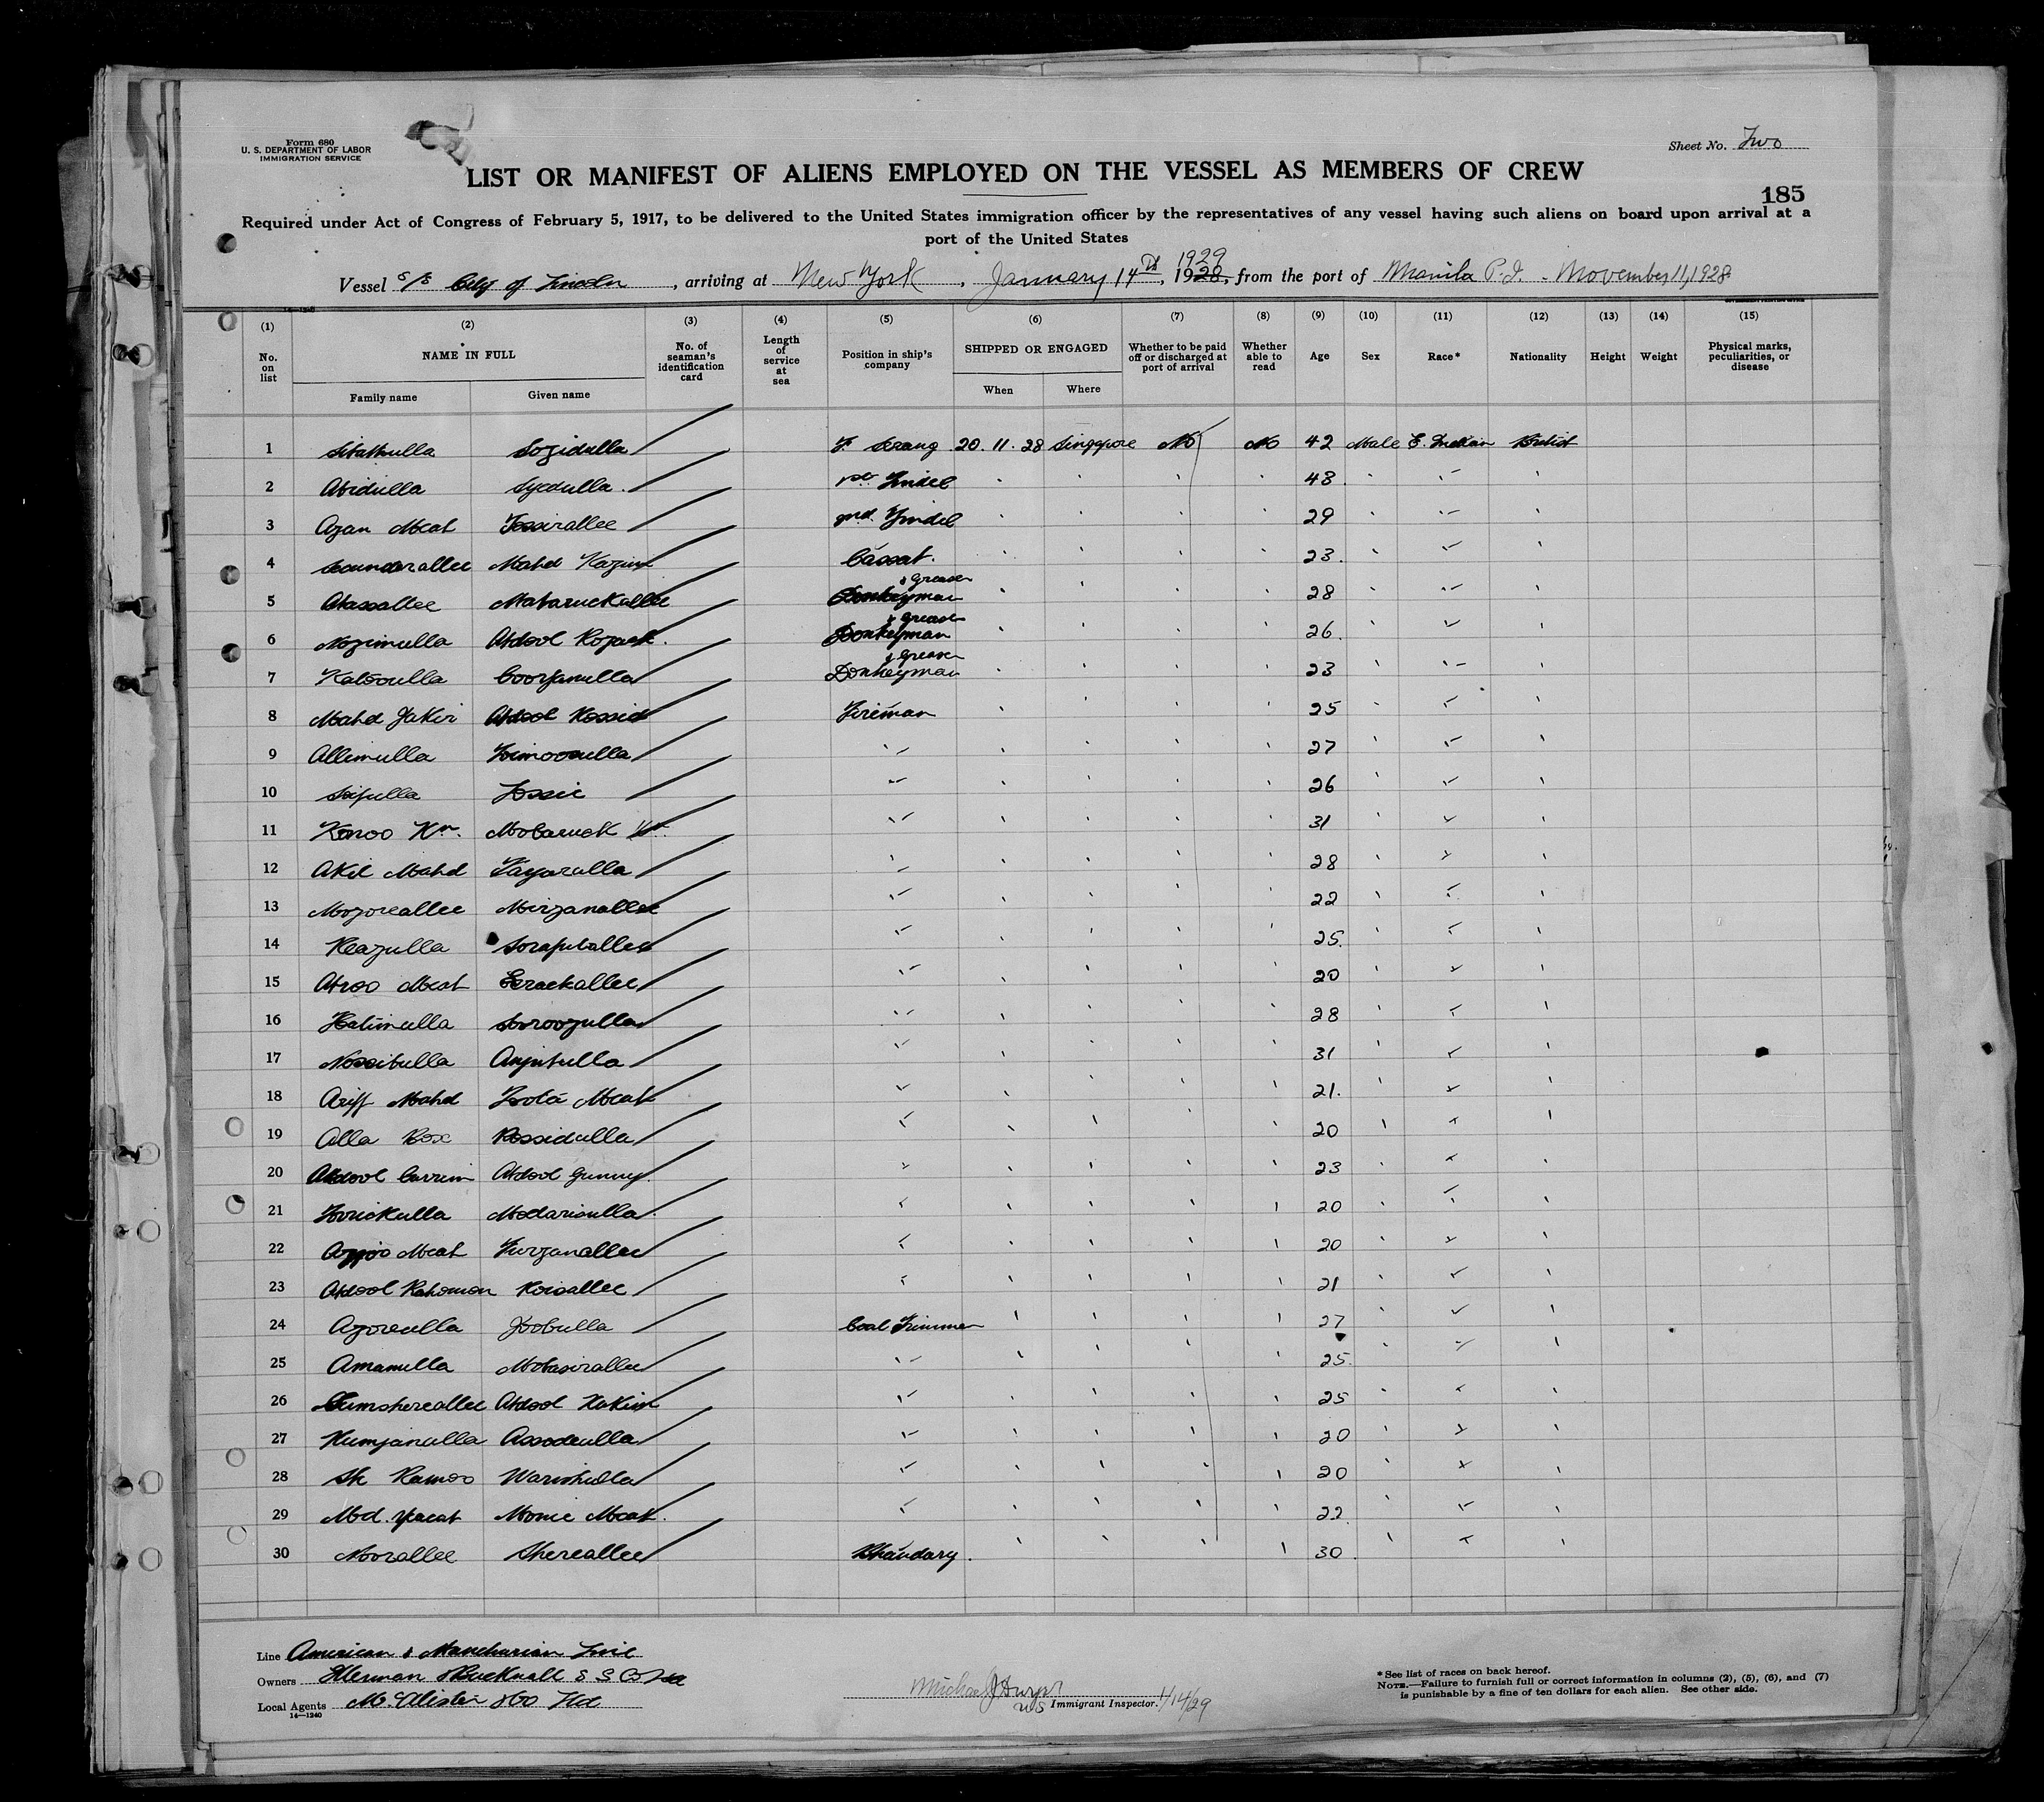 Form 680
U. S. DEPARTMENT OF LABOR
IMMIGRATION SERVICE
Sheet No. Two
LIST OR MANIFEST OF ALIENS EMPLOYED ON THE VESSEL AS MEMBERS OF CREW
185
Required under Act of Congress of February 5, 1917, to be delivered to the United States immigration officer by the representatives of any vessel having such aliens on board upon arrival at a
port of the United States
1929
Vessel S/S City of Lincoln, arriving at New York, January 14th, 1928, from the port of Manila P.I. - November 11, 1928
14—1240
(1) (2) (3) (4) (5) (6) (7) (8) (9) (10) (11) (12) (13) (14) (15)
No. on list NAME IN FULL No. of seaman's identification card Length of service at sea Position in ship's company SHIPPED OR ENGAGED Whether to be paid off or discharged at port of arrival Whether able to read Age Sex Race* Nationality Height Weight Physical marks, peculiarities, or disease
Family name Given name When Where
1 Sitathulla Sozidulla F. Serang 20.11.28 Singapore No No 42 Male E. Indian British
2 Abidulla Syedulla 1st Tindel 48
3 Azan Meat Tossirallee 2nd Tindel 29
4 Secunderallee Mahd Kazim Cassab 23
5 Abassallee Mabaruckallee Donkeyman & Greaser 28
6 Nozimulla Abdool Rozack Donkeyman & Greaser 26
7 Kalooulla Coorjanulla Donkeyman & Greaser 23
8 Mahd Jakir Abdool Kossid Fireman 25
9 Allimulla 27
10 Sifulla 26
11 Konoo Kn. Mobaruck Kn. 31
12 Akil Mahd Tayoralla 28
13 Mozoreallee Mirjanallee 22
14 Keazulla Sorafutallee 25
15 Abroo Meat Esrackallee 20
16 Hatimulla Soroozulla 28
17 Nossibulla Anjubulla 31
18 Ariff Mahd Tota Meat 21
19 Alla Box Rossidulla 20
20 Abdool Carrim Abdool Gunny 23
21 Modarisulla 20
22 Meat Furzanallee 20
23 Abdool Rahoman Roisallee 21
24 Azoreulla Joobulla Coal Trimmer 27
25 Amanulla Mobasirallee 25
26 Sumshereallee Abdool Hakim 25
27 Kumjanulla Assodeulla 20
28 Sk Ramoo Warishulla 20
29 Md. Yacat Monie Meat 22
30 Noorallee Shereallee Bhandary 30
Line American & Manchurian Line
Owners Ellerman & Bucknall S S Co Ltd
Local Agents McAlister & Co Ltd
14—1240
Michael J
Immigrant Inspector. 1/14/29
* See list of races on back hereof.
NOTE.—Failure to furnish full or correct information in columns (2), (5), (6), and (7)
is punishable by a fine of ten dollars for each alien. See other side.